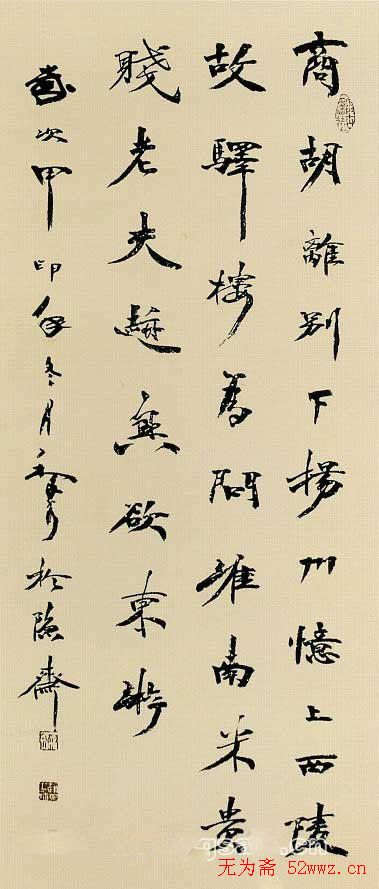 商胡離別下揚州憶上西陵
故驛樓為問淮南米貴
賤老夫興欲東游
歲次甲年冬月於齋
无为斋 52wwz.cn